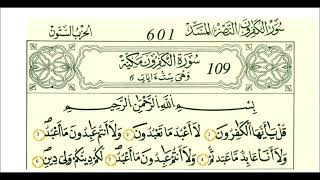 سُورَةُ الْكٰفِرُونَ / النَّصْر / الْمَسَد 601 الحِزْبُ السِّتُّونَ
سُورَةُ الْكٰفِرُونَ مَكِّيَّة 109
وَهِيَ سِتُّ اٰيَاتٍ 6
بِسْمِ اللّٰهِ الرَّحْمٰنِ الرَّحِيمِ
قُلْ يَا أَيُّهَا الْكٰفِرُونَ ① لَا أَعْبُدُ مَا تَعْبُدُونَ ② وَلَا أَنْتُمْ عٰبِدُونَ مَا أَعْبُدُ ③
وَلَا أَنَا عَابِدٌ مَا عَبَدْتُمْ ④ وَلَا أَنْتُمْ عٰبِدُونَ مَا أَعْبُدُ ⑤ لَكُمْ دِينُكُمْ وَلِيَ دِينِ ⑥